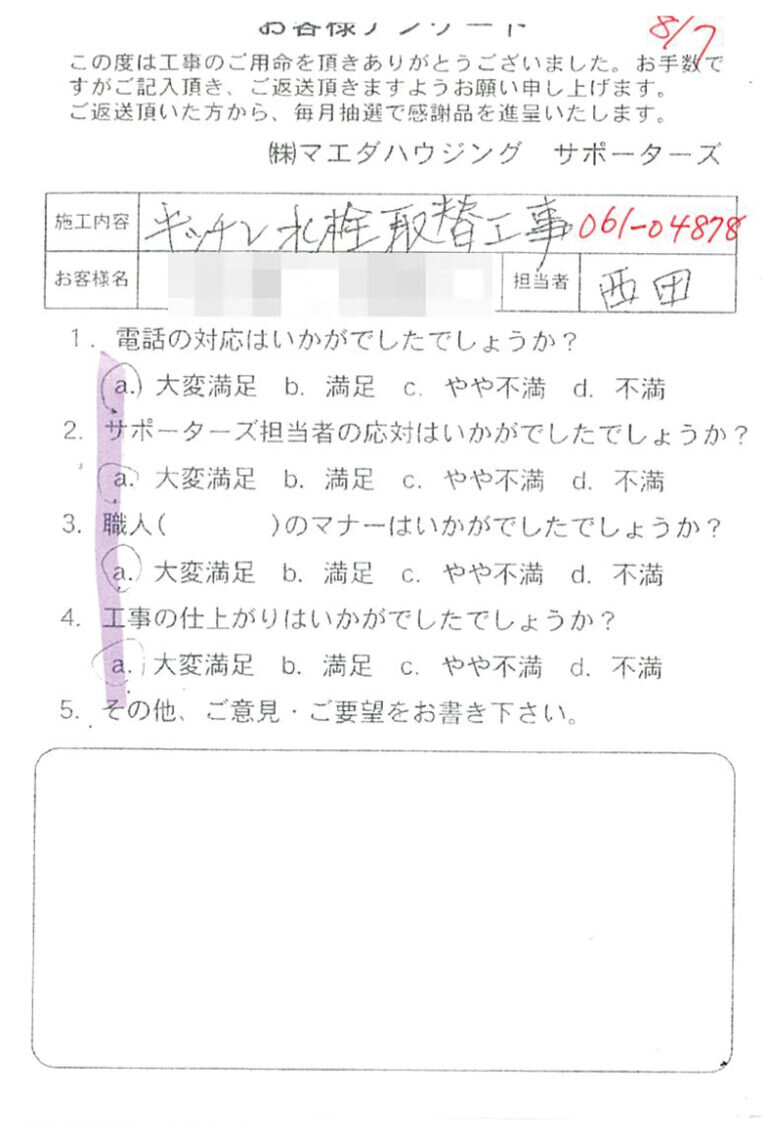 お客様アンケート
8/7
この度は工事のご用命を頂きありがとうございました。お手数で
すがご記入頂き、ご返送頂きますようお願い申し上げます。
ご返送頂いた方から、毎月抽選で感謝品を進呈いたします。
㈱マエダハウジング サポーターズ
施工内容 キッチン水栓取替工事 061-04878
お客様名 担当者 西田
1. 電話の対応はいかがでしたでしょうか?
a. 大変満足 b. 満足 c. やや不満 d. 不満
2. サポーターズ担当者の応対はいかがでしたでしょうか?
a. 大変満足 b. 満足 c. やや不満 d. 不満
3. 職人( )のマナーはいかがでしたでしょうか?
a. 大変満足 b. 満足 c. やや不満 d. 不満
4. 工事の仕上がりはいかがでしたでしょうか?
a. 大変満足 b. 満足 c. やや不満 d. 不満
5. その他、ご意見・ご要望をお書き下さい。